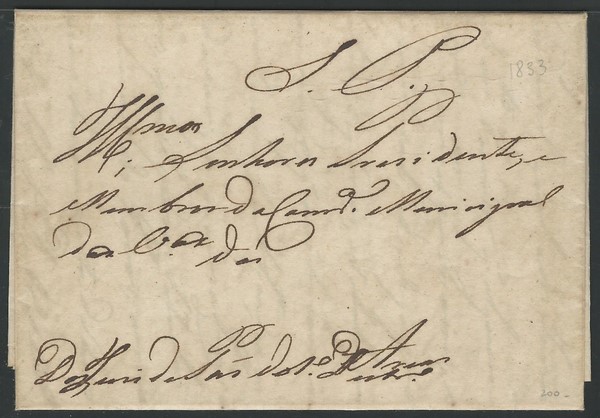 S. P.
1833
Illmos Senhores Presidente, e
Membros da Camr.ª Municipal
da V.ª das
Do Juiz de Paz do
200-